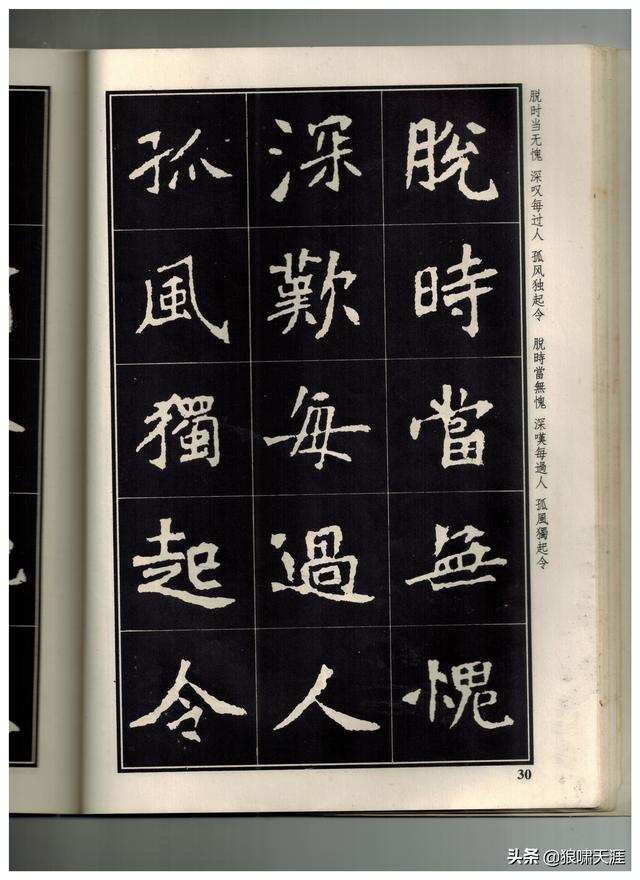 脫時當無愧
深歎每過人
孤風獨起令
脱时当无愧 深叹每过人 孤风独起令
脫時當無愧 深嘆每過人 孤風獨起令
30
头条 @狼啸天涯